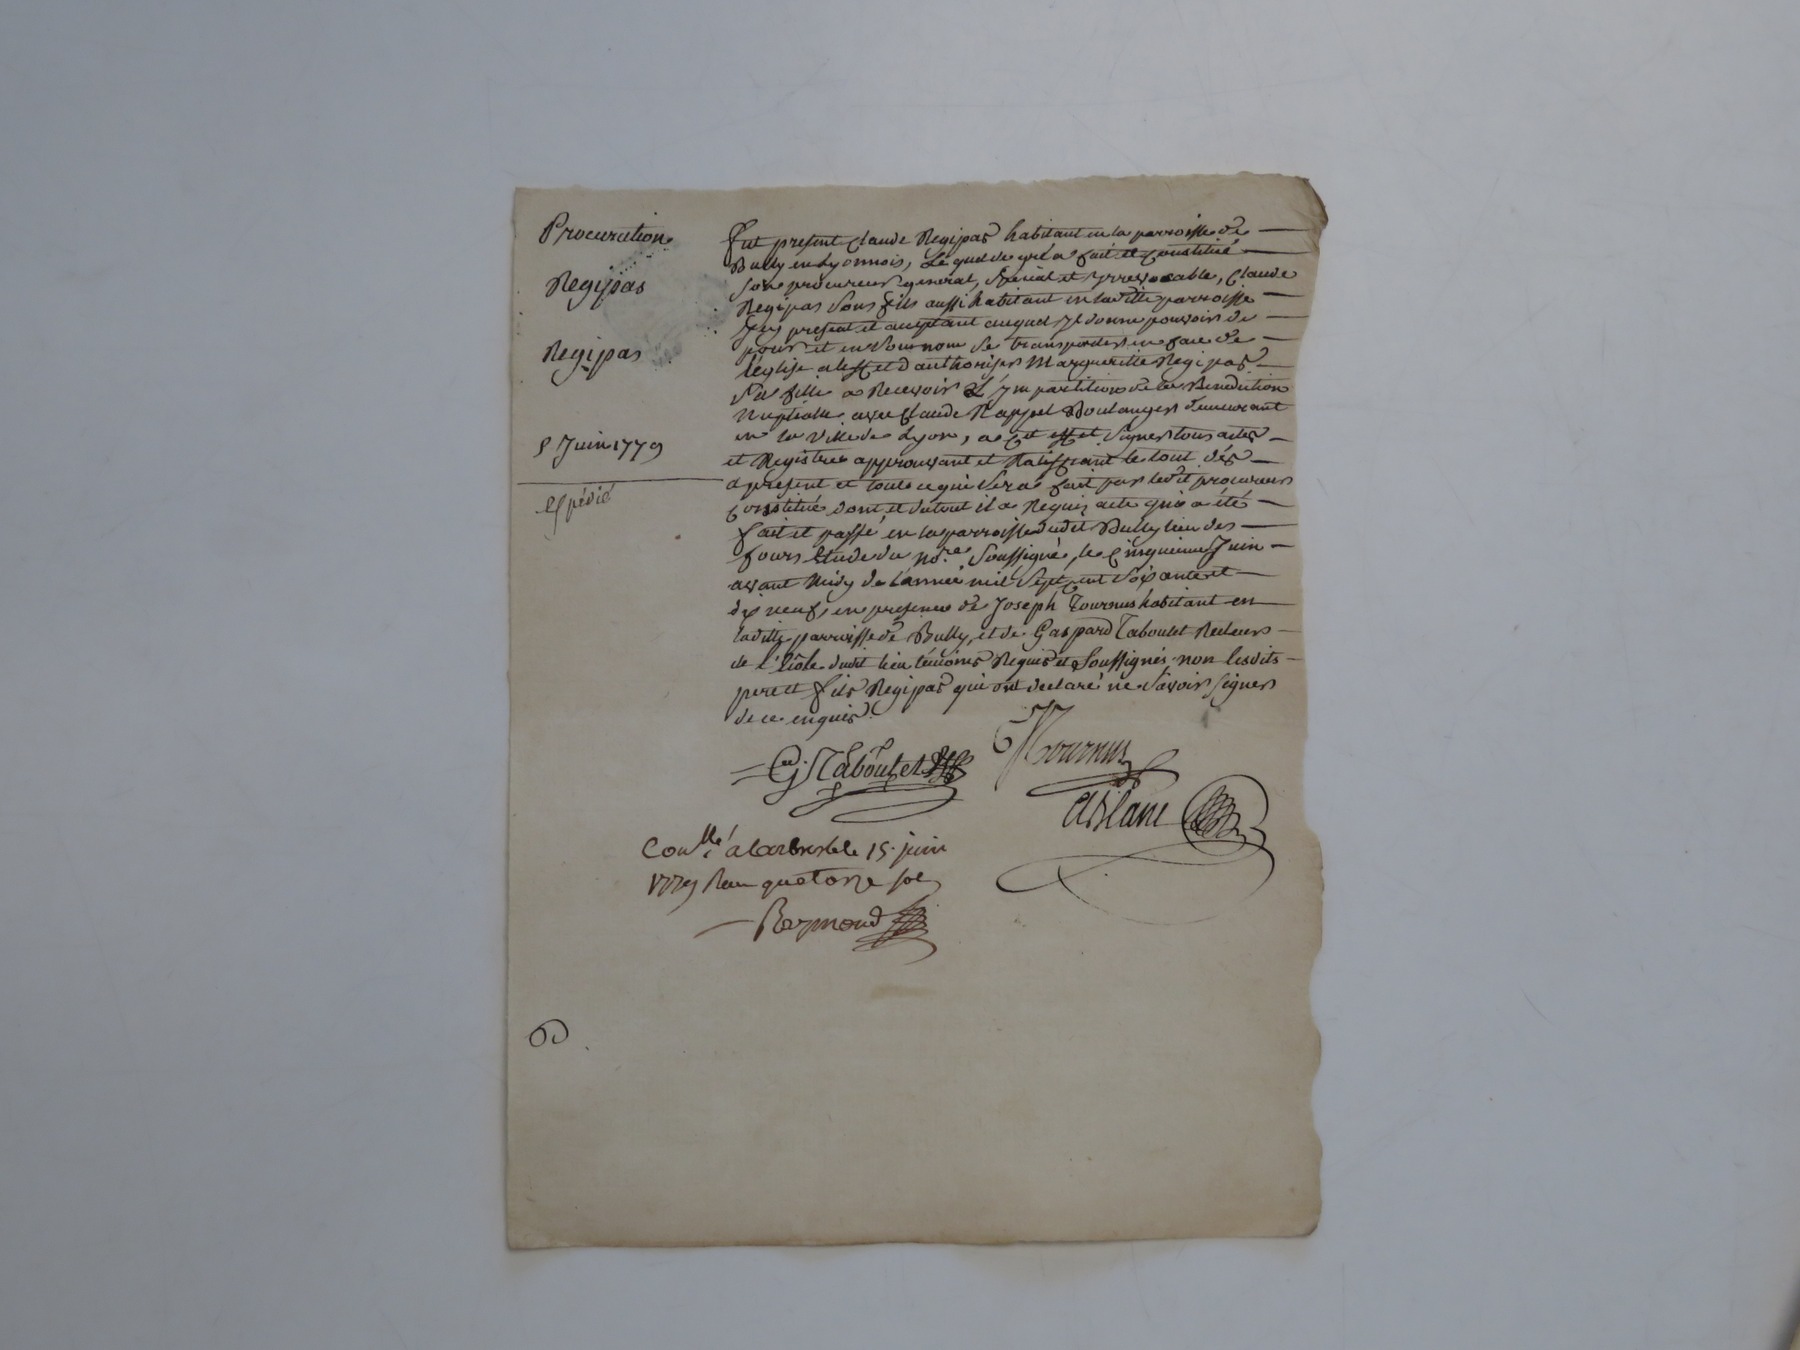 Procuration
Regipas
Regipas
5 Juin 1779
Expédié
fut present Claude Regipas habitant en la parroisse de
Bully en Lyonnois, Lequel de gré a fait et Constitué
son procureur general, Special et Yrrevocable, Claude
Regipas Sons fils aussi habitant en laditte parroisse
Icy present et acceptant auquel Jl donne pouvoir de
pour et en Son nom se transporter en face de
l'eglise a l'effet d'authoriser Margueritte Regipas
Sa fille a Recevoir L'ympartition de la Benediction
Nuptialle avec Claude Rappet Boulanger demeurant
en la ville de Lyon, a Cet effet Signer tous actes
et Registres approuvant et Ratiffiant le tout dés
a present et tout ce qui Sera fait par ledit procureur
Constitué dont et du tout il a Requis acte qui a été
fait et passé en la parroisse dudit Bully lieu des
fours Etude du no.re Soussigné, le Cinquieme Juin
avant Midy de L'année mil Sept Cent Soixante et
dix neuf, en presence de Joseph Tournus habitant en
laditte parroisse de Bully, et de Gaspard Taboulet Recteur
de l'Ecole dudit lieu témoins Requis et Soussignés non lesdits
pere et fils Regipas qui ont declaré ne Savoir Signer
de ce enquis
G. Taboulet
Tournus
Conllé a larbresle le 15. juin
1779 Reçu quatorze sols
Raymond